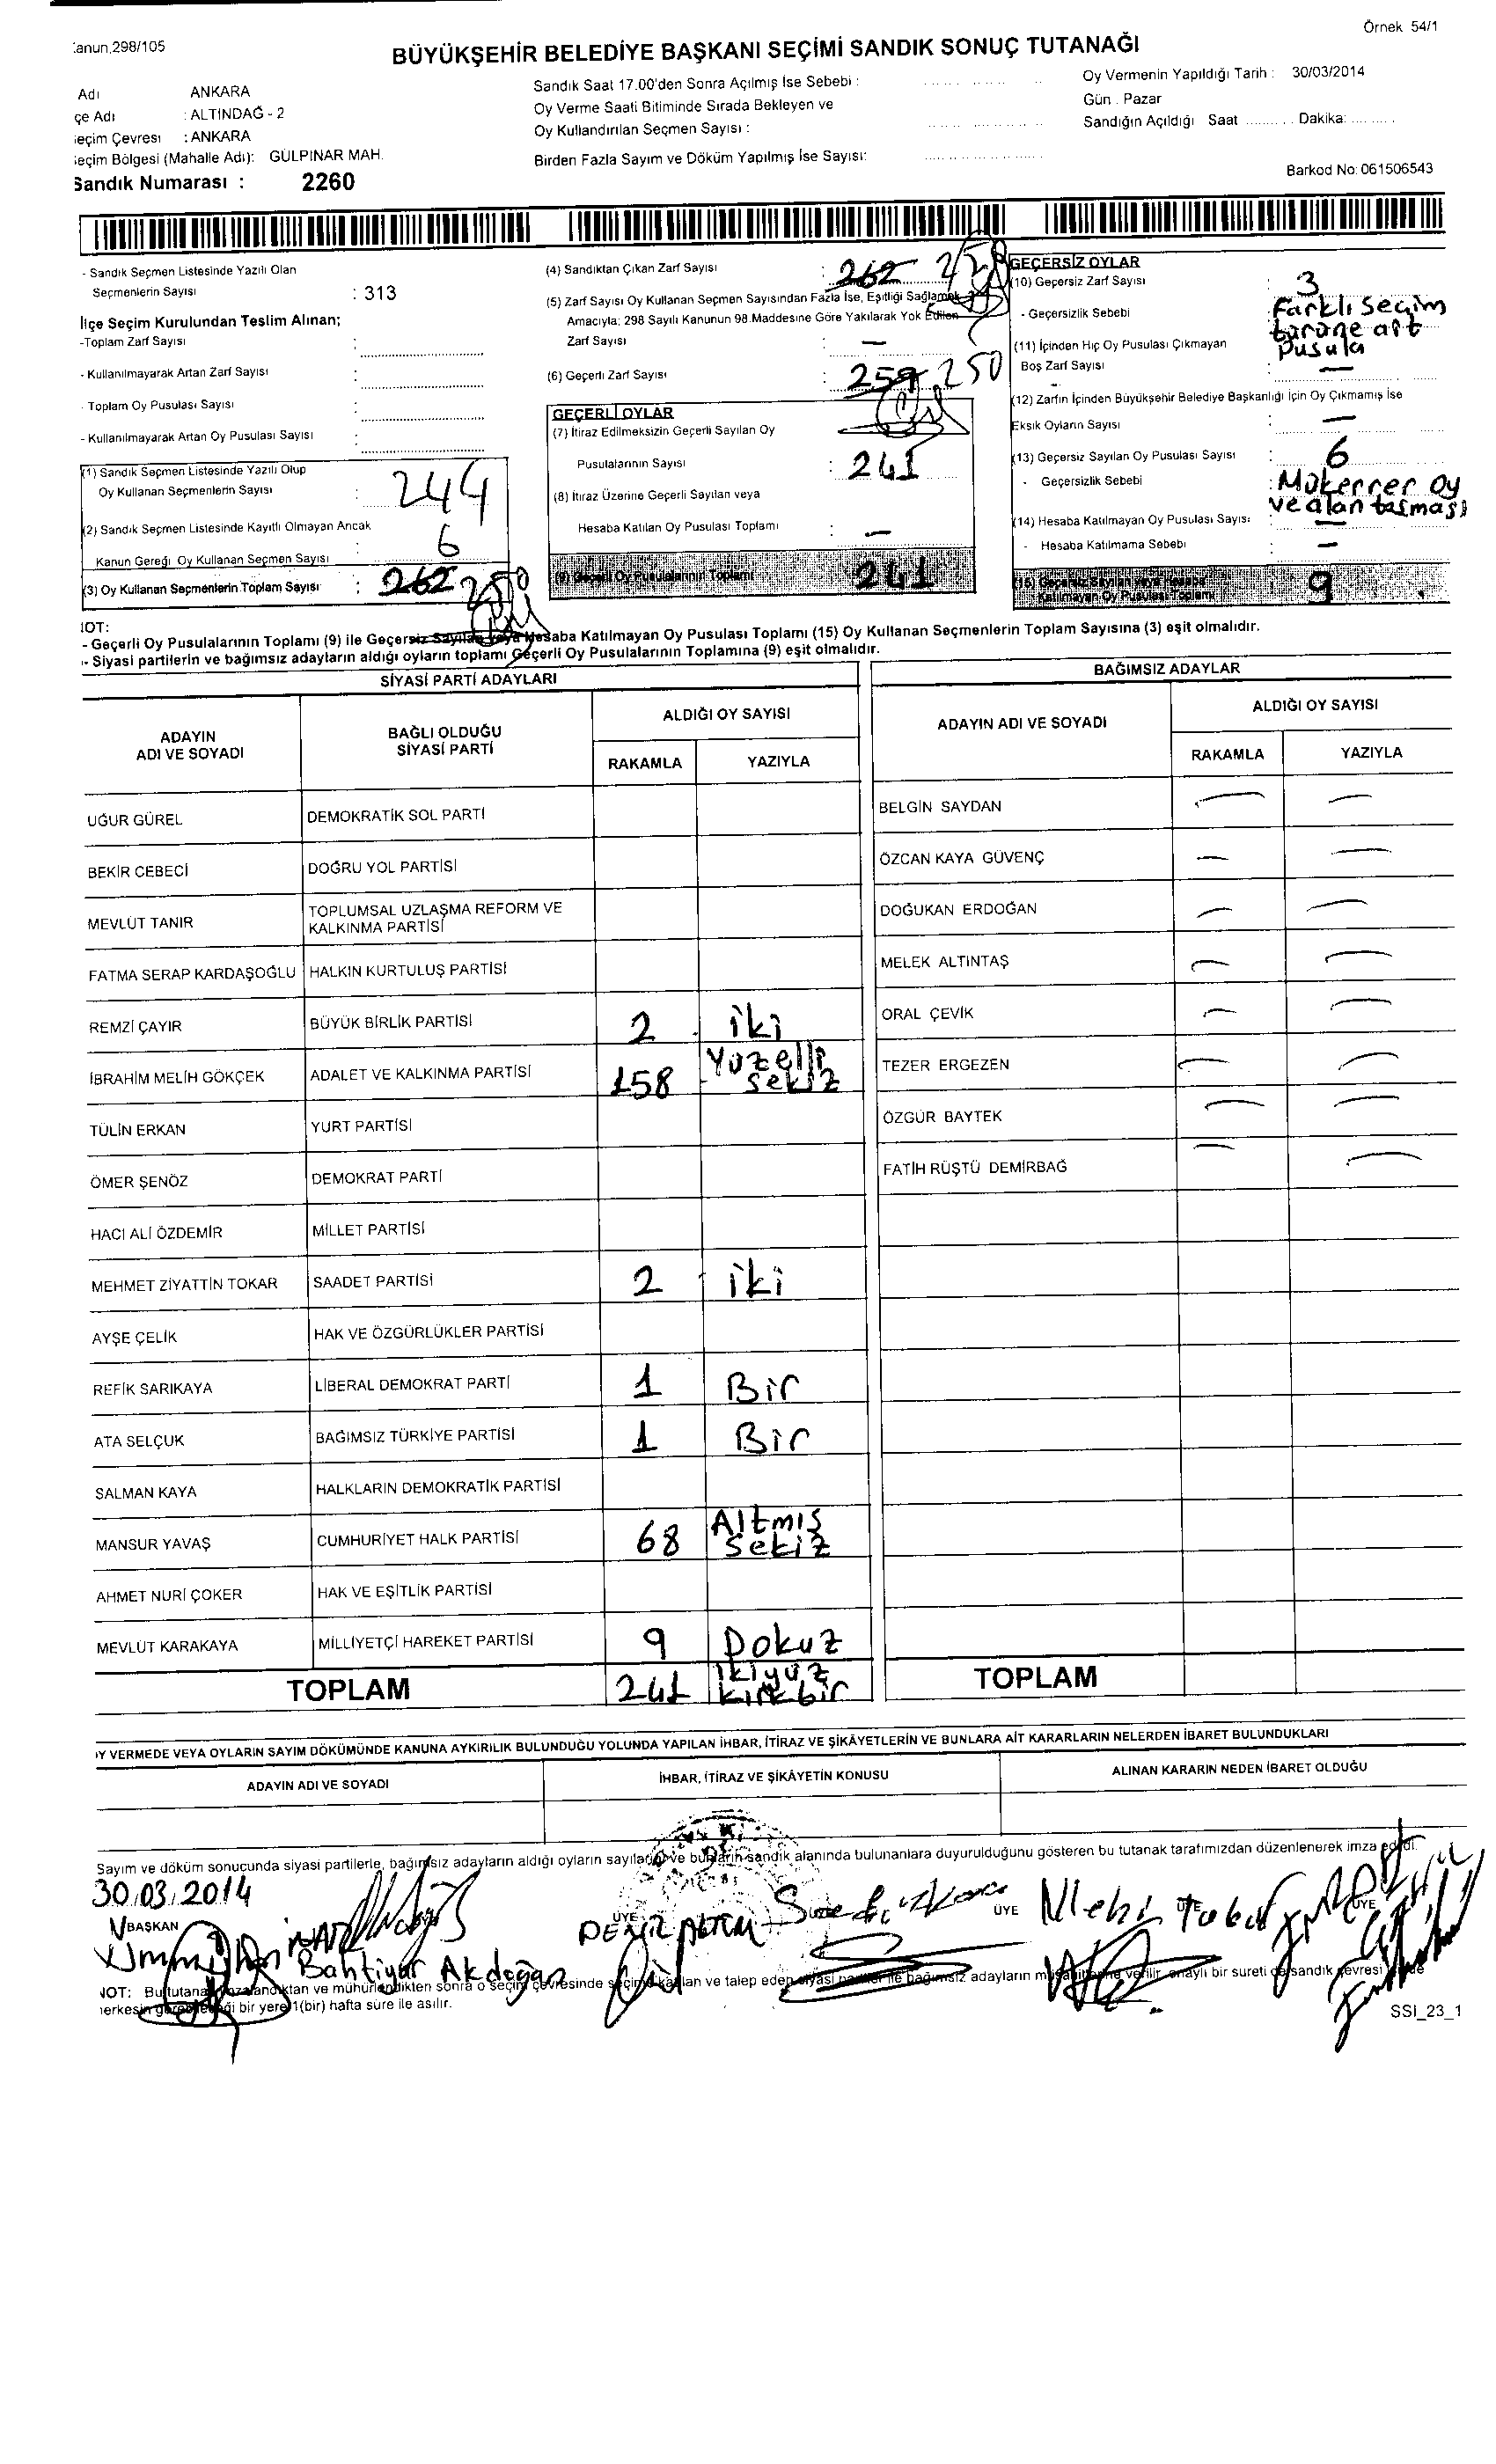 Örnek 54/1
anun,298/105
BÜYÜKŞEHİR BELEDİYE BAŞKANI SEÇİMİ SANDIK SONUÇ TUTANAĞI
Adı ANKARA
çe Adı : ALTINDAĞ - 2
eçim Çevresi : ANKARA
eçim Bölgesi (Mahalle Adı): GÜLPINAR MAH.
Sandık Numarası : 2260
Sandık Saat 17.00'den Sonra Açılmış İse Sebebi :
Oy Verme Saati Bitiminde Sırada Bekleyen ve
Oy Kullandırılan Seçmen Sayısı :
Birden Fazla Sayım ve Döküm Yapılmış İse Sayısı:
Oy Vermenin Yapıldığı Tarih : 30/03/2014
Gün : Pazar
Sandığın Açıldığı Saat .......... Dakika: .........
Barkod No: 061506543
- Sandık Seçmen Listesinde Yazılı Olan
Seçmenlerin Sayısı : 313
İlçe Seçim Kurulundan Teslim Alınan;
-Toplam Zarf Sayısı :
- Kullanılmayarak Artan Zarf Sayısı :
- Toplam Oy Pusulası Sayısı :
- Kullanılmayarak Artan Oy Pusulası Sayısı :
(1) Sandık Seçmen Listesinde Yazılı Olup
Oy Kullanan Seçmenlerin Sayısı : 244
(2) Sandık Seçmen Listesinde Kayıtlı Olmayan Ancak
Kanun Gereği Oy Kullanan Seçmen Sayısı : 6
(3) Oy Kullanan Seçmenlerin Toplam Sayısı : 262 250
(4) Sandıktan Çıkan Zarf Sayısı : 262
(5) Zarf Sayısı Oy Kullanan Seçmen Sayısından Fazla İse, Eşitliği Sağlamak
Amacıyla; 298 Sayılı Kanunun 98.Maddesine Göre Yakılarak Yok Edilen
Zarf Sayısı : —
(6) Geçerli Zarf Sayısı : 259 250
GEÇERLİ OYLAR
(7) İtiraz Edilmeksizin Geçerli Sayılan Oy
Pusulalarının Sayısı : 241
(8) İtiraz Üzerine Geçerli Sayılan veya
Hesaba Katılan Oy Pusulası Toplamı : —
(9) Geçerli Oy Pusulalarının Toplamı 241
GEÇERSİZ OYLAR
(10) Geçersiz Zarf Sayısı : 3
- Geçersizlik Sebebi : Farklı Seçim
türüne ait
Pusula
(11) İçinden Hiç Oy Pusulası Çıkmayan
Boş Zarf Sayısı : —
(12) Zarfın İçinden Büyükşehir Belediye Başkanlığı İçin Oy Çıkmamış İse
Eksik Oyların Sayısı : —
(13) Geçersiz Sayılan Oy Pusulası Sayısı : 6
- Geçersizlik Sebebi : Mükerrer oy
ve alan taşması
(14) Hesaba Katılmayan Oy Pusulası Sayısı : —
- Hesaba Katılmama Sebebi : —
(15) Geçersiz Sayılan veya Hesaba
Katılmayan Oy Pusulası Toplamı 9
NOT:
- Geçerli Oy Pusulalarının Toplamı (9) ile Geçersiz Sayılan veya Hesaba Katılmayan Oy Pusulası Toplamı (15) Oy Kullanan Seçmenlerin Toplam Sayısına (3) eşit olmalıdır.
- Siyasi partilerin ve bağımsız adayların aldığı oyların toplamı Geçerli Oy Pusulalarının Toplamına (9) eşit olmalıdır.
SİYASİ PARTİ ADAYLARI
ADAYIN
ADI VE SOYADI
BAĞLI OLDUĞU
SİYASİ PARTİ
ALDIĞI OY SAYISI
RAKAMLA YAZIYLA
UĞUR GÜREL DEMOKRATİK SOL PARTİ
BEKİR CEBECİ DOĞRU YOL PARTİSİ
MEVLÜT TANIR TOPLUMSAL UZLAŞMA REFORM VE
KALKINMA PARTİSİ
FATMA SERAP KARDAŞOĞLU HALKIN KURTULUŞ PARTİSİ
REMZİ ÇAYIR BÜYÜK BİRLİK PARTİSİ 2 iki
İBRAHİM MELİH GÖKÇEK ADALET VE KALKINMA PARTİSİ 158 Yüzelli
sekiz
TÜLİN ERKAN YURT PARTİSİ
ÖMER ŞENÖZ DEMOKRAT PARTİ
HACI ALİ ÖZDEMİR MİLLET PARTİSİ
MEHMET ZİYATTİN TOKAR SAADET PARTİSİ 2 iki
AYŞE ÇELİK HAK VE ÖZGÜRLÜKLER PARTİSİ
REFİK SARIKAYA LİBERAL DEMOKRAT PARTİ 1 Bir
ATA SELÇUK BAĞIMSIZ TÜRKİYE PARTİSİ 1 Bir
SALMAN KAYA HALKLARIN DEMOKRATİK PARTİSİ
MANSUR YAVAŞ CUMHURİYET HALK PARTİSİ 68 Altmış
Sekiz
AHMET NURİ ÇOKER HAK VE EŞİTLİK PARTİSİ
MEVLÜT KARAKAYA MİLLİYETÇİ HAREKET PARTİSİ 9 Dokuz
TOPLAM 241 ikiyüz
kırkbir
BAĞIMSIZ ADAYLAR
ADAYIN ADI VE SOYADI
ALDIĞI OY SAYISI
RAKAMLA YAZIYLA
BELGİN SAYDAN — —
ÖZCAN KAYA GÜVENÇ — —
DOĞUKAN ERDOĞAN — —
MELEK ALTINTAŞ — —
ORAL ÇEVİK — —
TEZER ERGEZEN — —
ÖZGÜR BAYTEK — —
FATİH RÜŞTÜ DEMİRBAĞ — —
TOPLAM
Y VERMEDE VEYA OYLARIN SAYIM DÖKÜMÜNDE KANUNA AYKIRILIK BULUNDUĞU YOLUNDA YAPILAN İHBAR, İTİRAZ VE ŞİKÂYETLERİN VE BUNLARA AİT KARARLARIN NELERDEN İBARET BULUNDUKLARI
ADAYIN ADI VE SOYADI İHBAR, İTİRAZ VE ŞİKÂYETİN KONUSU ALINAN KARARIN NEDEN İBARET OLDUĞU
Sayım ve döküm sonucunda siyasi partilerle, bağımsız adayların aldığı oyların sayıları ve bunların sandık alanında bulunanlara duyurulduğunu gösteren bu tutanak tarafımızdan düzenlenerek imza edildi.
30.03.2014
BAŞKAN ÜYE ÜYE ÜYE ÜYE
Bahtiyar Akdoğan
NOT: Bu tutanak imzalandıktan ve mühürlendikten sonra o seçim çevresinde seçime katılan ve talep eden siyasi partiler ile bağımsız adayların müşahitlerine verilir, onaylı bir sureti de sandık çevresi
herkesin görebileceği bir yere 1(bir) hafta süre ile asılır.
SSI_23_1